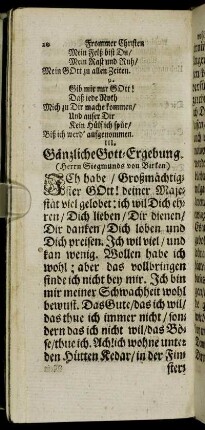 20 Frommer Christen
Mein Felß bist Du/
Mein Rast und Ruh/
Mein GOtt zu allen Zeiten.
9.
Gib mir nur GOtt!
Daß jede Noth
Mich zu Dir mache kommen/
Und auser Dir
Kein Hülf ich spür/
Biß ich werd' aufgenommen.
III.
Gänzliche Gott-Ergebung.
(Herrn Siegmunds von Birken)
JCh habe / Großmächtig-
ster GOtt! deiner Maje-
stät viel gelobet: ich wil Dich eh-
ren/ Dich lieben/ Dir dienen/
Dir danken/ Dich loben und
Dich preisen. Jch wil viel / und
kan wenig. Wollen habe ich
wohl; aber das vollbringen
finde ich nicht bey mir. Jch bin
mir meiner Schwachheit wohl
bewust. Das Gute/ das ich wil/
das thue ich immer nicht/ son-
dern das ich nicht wil/ das Bö-
se/ thue ich. Ach! ich wohne unter
den Hütten Kedar/ in der Fin-
ster-